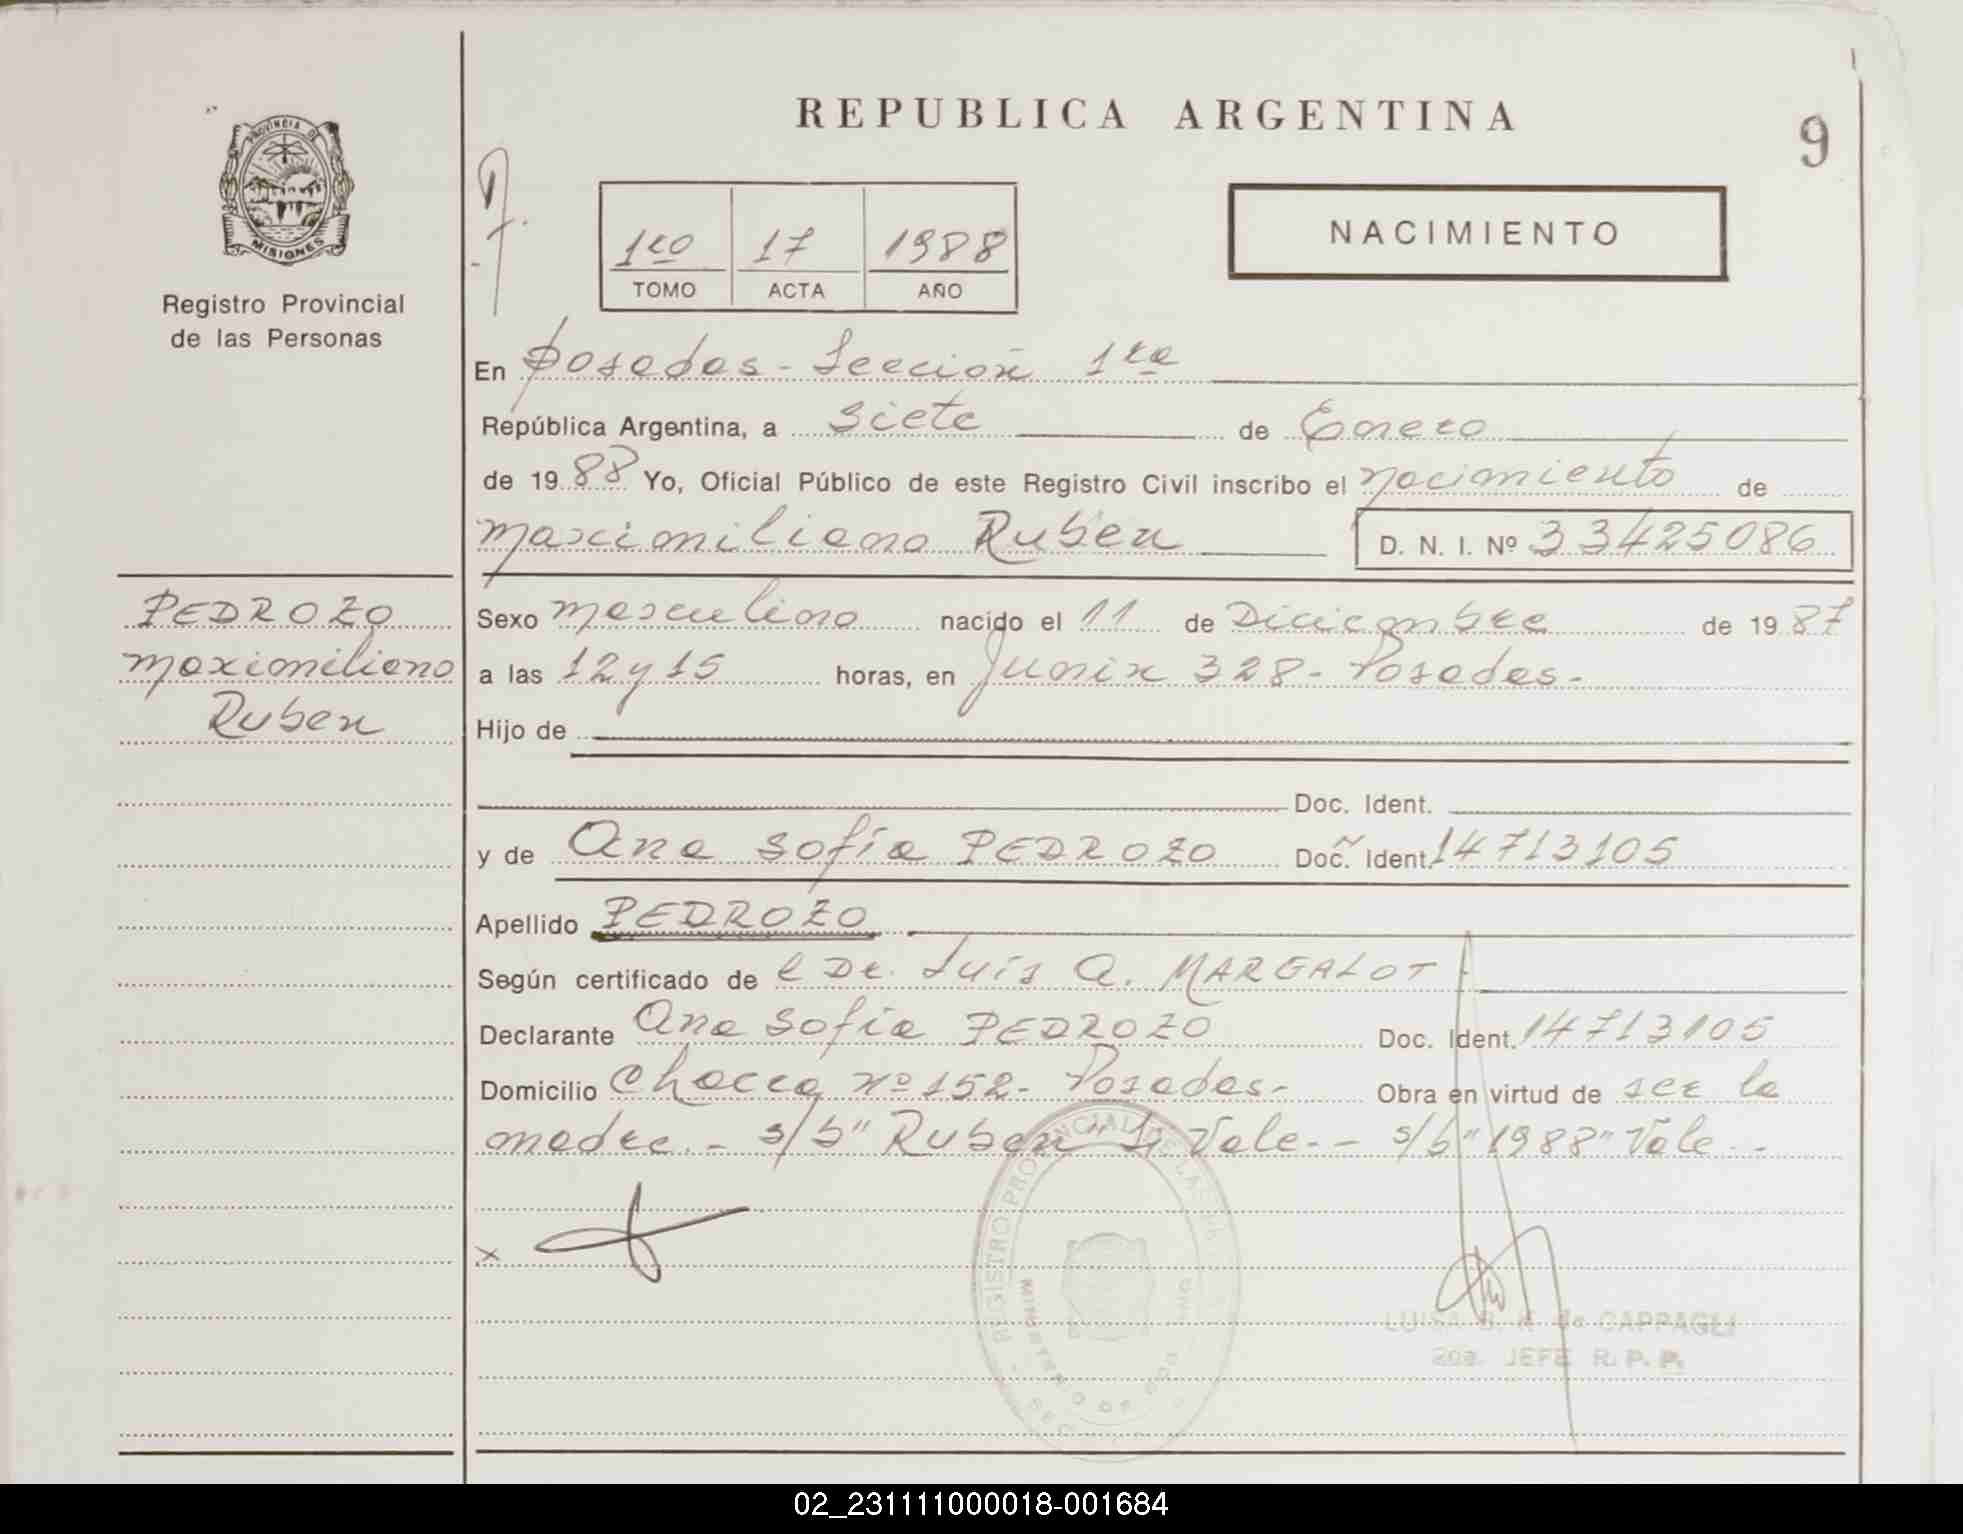 REPUBLICA ARGENTINA
9
PROVINCIA DE
MISIONES
Registro Provincial
de las Personas
1ro 17 1988
TOMO ACTA AÑO
NACIMIENTO
En Posadas - Sección 1ra
República Argentina, a siete de Enero
de 1988 Yo, Oficial Público de este Registro Civil inscribo el nacimiento de
Maximiliano Ruben D. N. I. Nº 33425086
PEDROZO
Maximiliano
Ruben
Sexo masculino nacido el 11 de Diciembre de 1987
a las 12 y 15 horas, en Junin 328 - Posadas.-
Hijo de
Doc. Ident.
y de Ana Sofía PEDROZO Doc. Ident. 14713105
Apellido PEDROZO
Según certificado de l Dr. Luis A. MARGALOT.
Declarante Ana Sofía PEDROZO Doc. Ident. 14713105
Domicilio Chacra Nº 152 - Posadas - Obra en virtud de ser la
madre. - s/b "Ruben" Vale. - s/b "1988" Vale. -
x
REGISTRO PROVINCIAL DE LAS
MINISTERIO DE GOB
LUISA B. K de CAPPAGLI
2da. JEFE R. P. P.
02_231111000018-001684